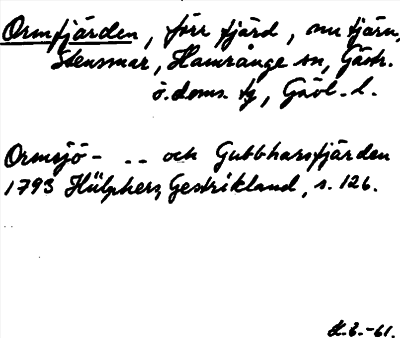 Ormfjärden, förr fjärd, nu tjärn,
Stensmar, Hamrånge sn, Gästr.
ö. doms. tg, Gävl. l.
Ormsjö- .. och Gubbharsfjärden
1793 Hülphers, Gestrikland, s. 126.